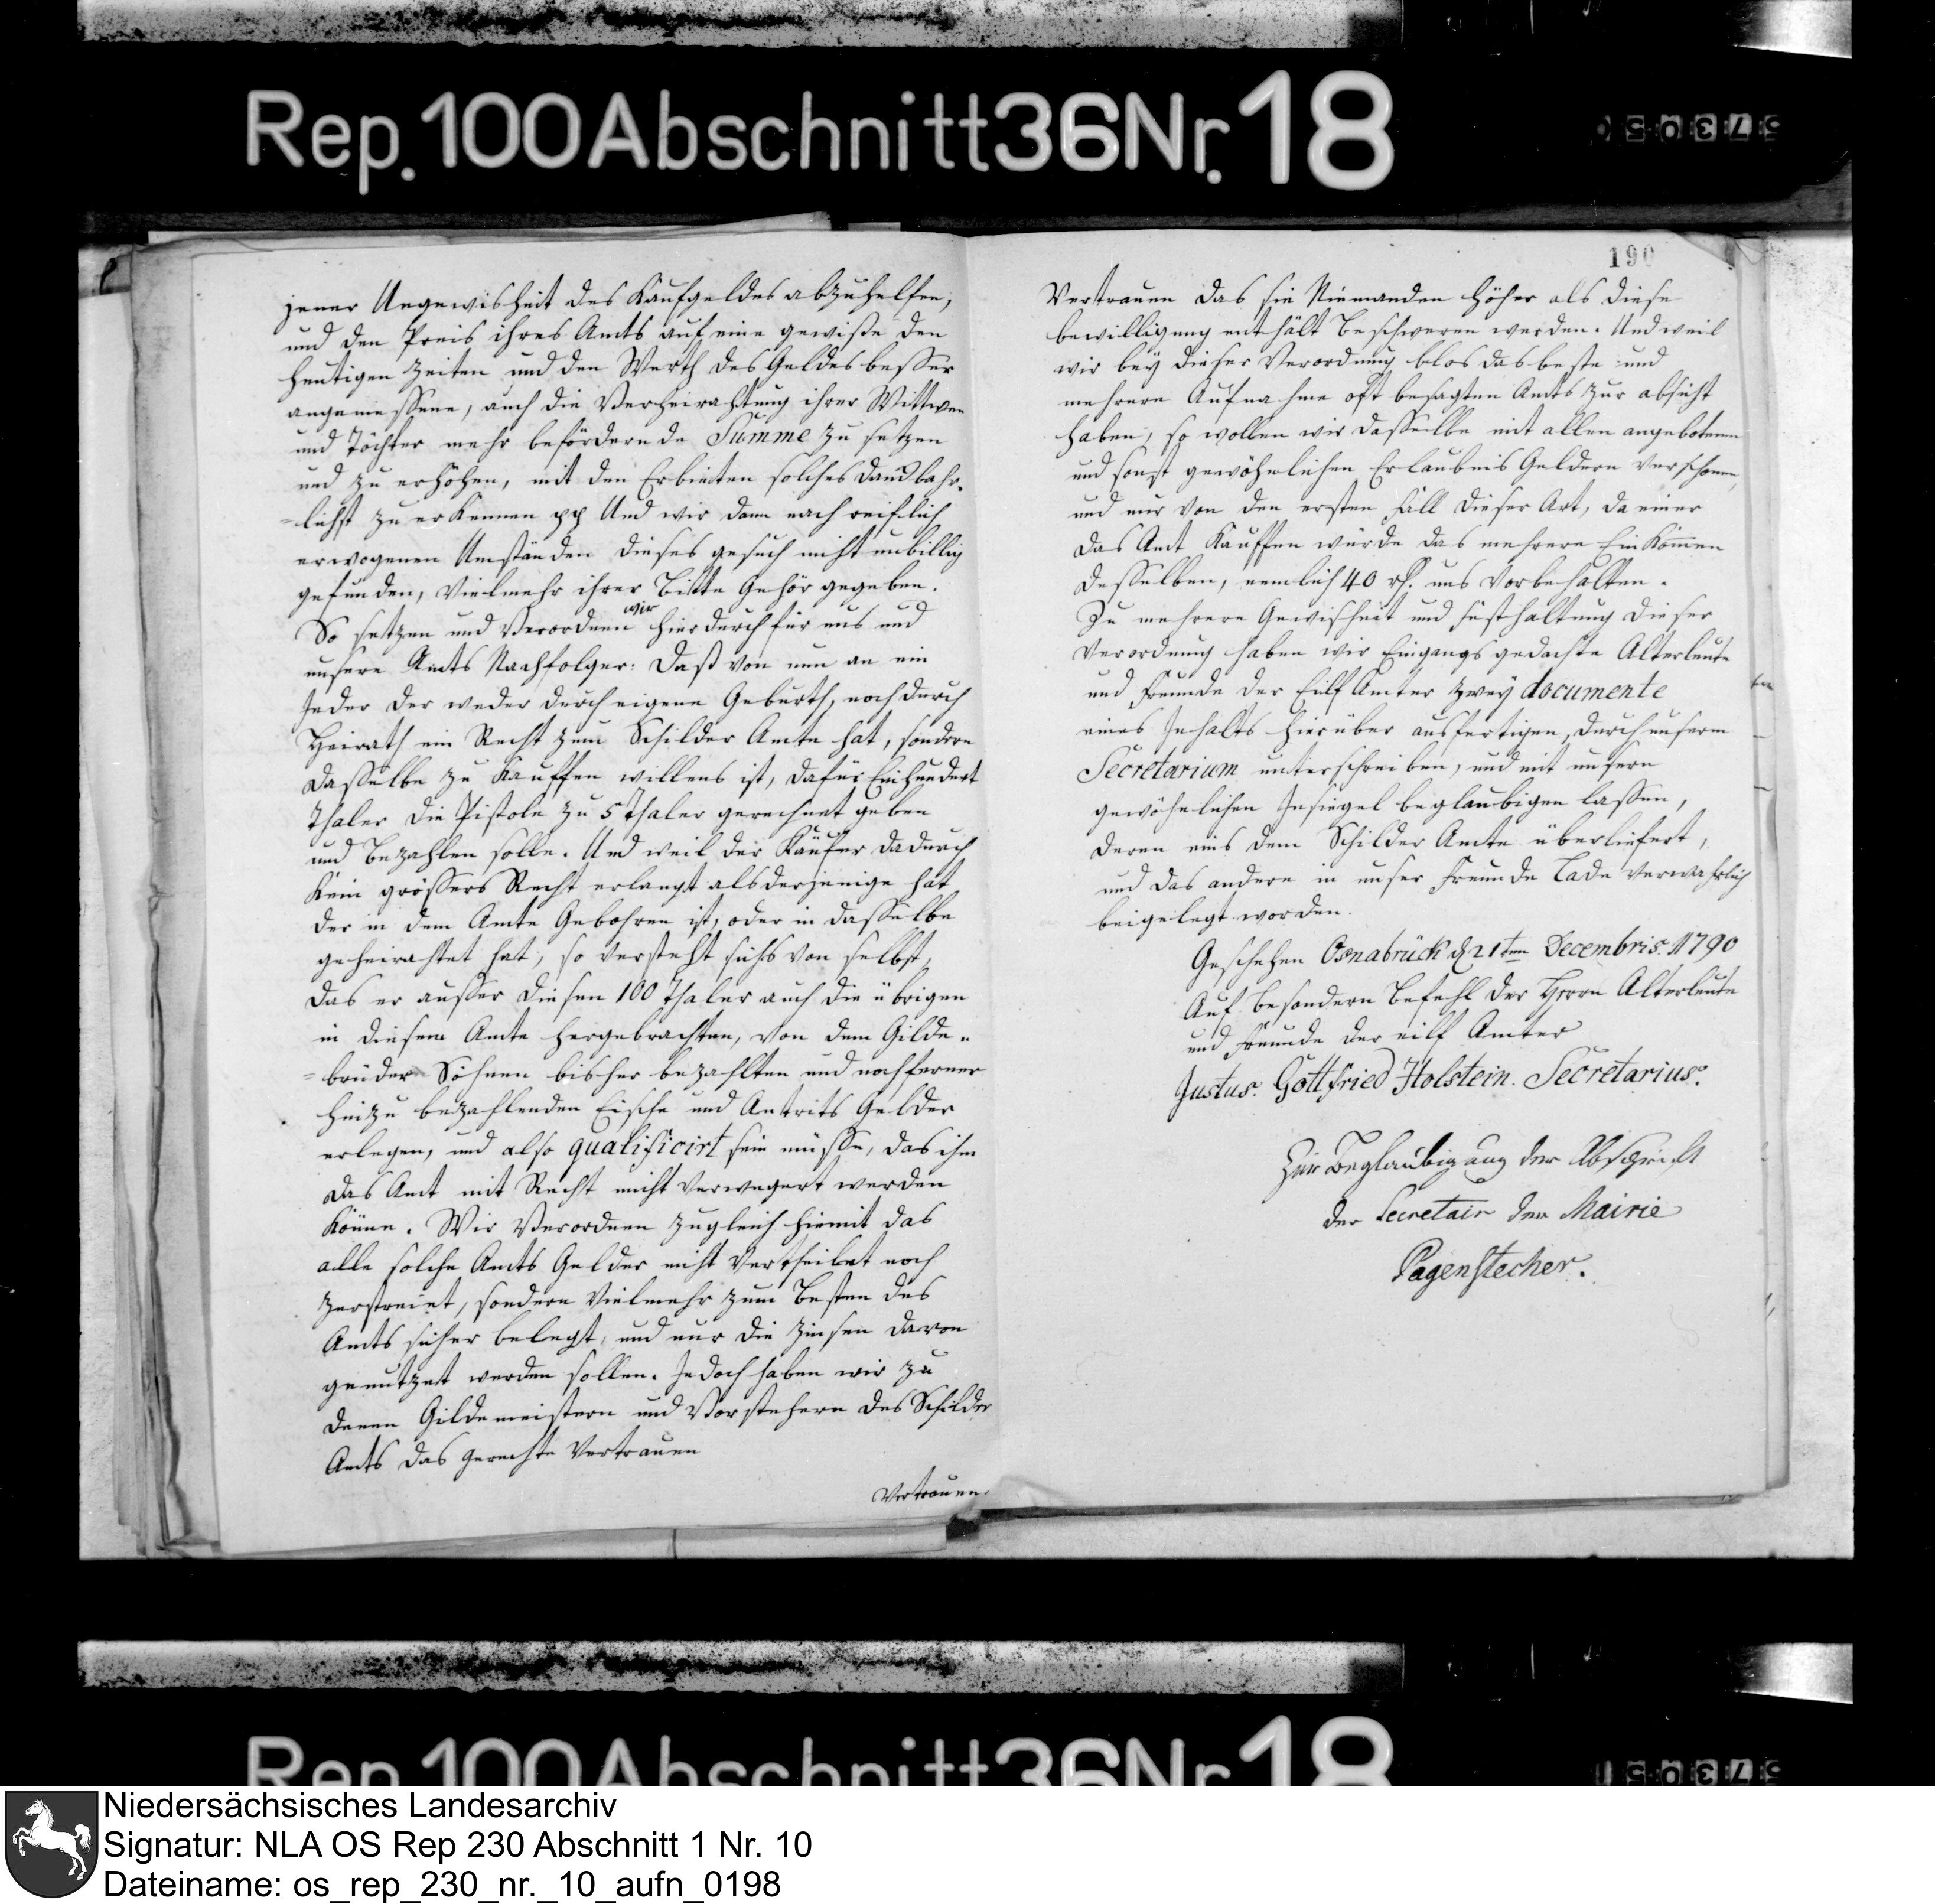 Rep. 100 Abschnitt 36 Nr. 18
jener Ungewisheit des Kaufgeldes abzuhelfen,
und den Preis ihres Amts auf eine gewiße den
heutigen Zeiten und den Werth des Geldes beßer
angemeßene, auch die Verheirahtung ihrer Wittwen
und Töchter mehr befördernde Summe zu setzen
und zu erhöhen, mit den Erbieten solches danckbahr-
-lichst zu erkennen pp Und wir dann nach reiflich
erwogenen Umständen dieses gesuch nicht unbillig
gefunden, Vielmehr ihrer Bitte Gehör gegeben.
So setzen und Verordnen wir hierdurch für uns und
unsere Amts Nachfolger: Daß von nun an ein
Jeder der weder durch eigene Geburth, noch durch
Heirath ein Recht zum Schilder Amte hat, sondern
daßelbe zu Kauffen willens ist, dafür Einhundert
Thaler die Pistole zu 5 Thaler gerechnet geben
und Bezahlen solle. Und weil der Käufer dadurch
Kein größers Recht erlangt als derjenige hat
der in dem Amte Gebohren ist, oder in daßelbe
geheirahtet hat, so versteht sichs von selbst,
das er außer diesen 100 Thaler auch die übrigen
in diesem Amte hergebrachten, von dem Gilde-
-brüder Söhnen bisher bezahlten und noch ferner
hinzu bezahlenden Eische und Antrits Gelder
erlegen, und also qualificirt sein müße, das ihm
das Amt mit Recht nicht verwegert werden
Könne. Wir Verordnen zugleich hiemit das
alle solche Amts Gelder nicht Vertheilet noch
zerstreuet, sondern Vielmehr zum Besten des
Amts sicher belegt, und nur die Zinsen davon
genutzet werden sollen. Jedoch haben wir zu
denen Gildemeistern und Vorstehern des Schilder
Amts das gerechte Vertrauen
Vertrauen.
190
Vertrauen das sie Niemanden höher als diese
bewilligung enthält Beschweren werden. Und weil
wir bey dieser Verordnung blos das beste und
mehrere Aufnahme oft besagten Amts zur absicht
haben, so wollen wir daßelbe mit allen angebotenen
und sonst gewöhnlichen Erlaubnis Geldern verschonen,
und nur von den ersten Fall dieser Art, da einer
das Amt Kauffen würde das mehrere Einkommen
deßelben, nemlich 40 rh. uns Vorbehalten.
Zu mehrere Gewisheit und Festhaltung dieser
Verordnung haben wir Eingangs gedachte Alterleute
und Freunde der Eilf Ämter zwey documente
eines Inhalts hierüber ausfertigen, durch unserm
Secretarium unterschreiben, und mit unsern
gewöhnlichen Insiegel beglaubigen laßen,
deren eins dem Schilder Amte überliefert,
und das andere in unser Freunde Lade verwahrlich
beigelegt worden.
Geschehen Osnabrück d 21ten Decembris. 1790
Auf besondern Befehl der Herrn Alterleute
und Freunde der eilf Ämter
Justus. Gottfried Holstein. Secretarius.
Zur Beglaubigung der Abschrift
der Secretair der Mairie
Pagenstecher.
Rep. 100 Abschnitt 36 Nr. 18
Niedersächsisches Landesarchiv
Signatur: NLA OS Rep 230 Abschnitt 1 Nr. 10
Dateiname: os_rep_230_nr._10_aufn_0198